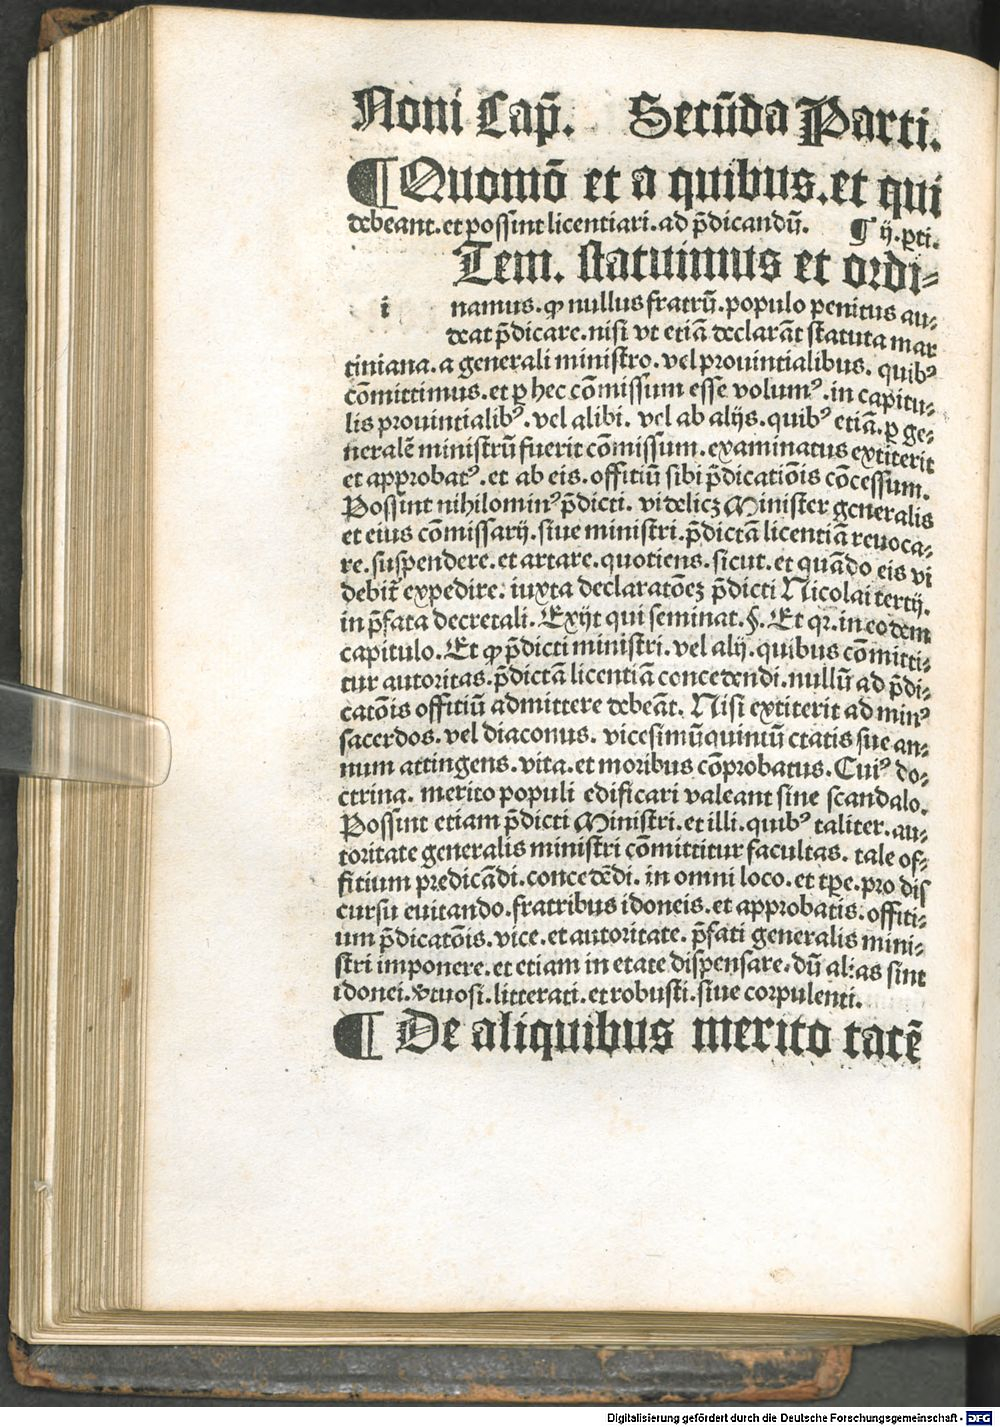 Noni Cap̄. Secūda Parti.
¶ Quomō et a quibus. et qui
debeant. et possint licentiari. ad p̄dicandū. ¶ ij. ꝑti.
Tem. statuimus et ordi-
i namus. ꝙ nullus fratrū. populo penitus au-
deat p̄dicare. nisi vt etiā declarāt statuta mar
tiniana. a generali ministro. vel prouintialibus. quibꝰ
cōmittimus. et ꝑ hec cōmissum esse volumꝰ. in capitu-
lis prouintialibꝰ. vel alibi. vel ab alijs. quibꝰ etiā. ꝑ ge-
neralē ministrū fuerit cōmissum. examinatus extiterit
et approbatꝰ. et ab eis. offitiū sibi p̄dicatiōis cōcessum.
Possint nihilominꝰ p̄dicti. videlicꝫ Minister generalis
et eius cōmissarij. siue ministri. p̄dictā licentiā reuoca-
re. suspendere. et artare. quotiens. sicut. et quādo eis vi
debit̄ expedire. iuxta declaratōeꝫ p̄dicti Nicolai tertij.
in p̄fata decretali. Exijt qui seminat. §. Et qꝛ. in eodem
capitulo. Et ꝙ p̄dicti ministri. vel alij. quibus cōmitti-
tur autoritas. p̄dictā licentiā concedendi. nullū ad p̄di-
catōis offitiū admittere debeāt. Nisi extiterit ad minꝰ
sacerdos. vel diaconus. vicesimūquintū etatis sue an-
num attingens. vita. et moribus cōprobatus. Cuiꝰ do-
ctrina. merito populi edificari valeant sine scandalo.
Possint etiam p̄dicti Ministri. et illi. quibꝰ taliter. au-
toritate generalis ministri cōmittitur facultas. tale of-
fitium predicādi. concedēdi. in omni loco. et tꝑe. pro dis
cursu euitando. fratribus idoneis. et approbatis. offiti-
um p̄dicatōis. vice. et autoritate. p̄fati generalis mini-
stri imponere. et etiam in etate dispensare. dū al:as sint
idonei. v̓tuosi. litterati. et robusti. siue corpulenti.
¶ De aliquibus merito tacē
Digitalisierung gefördert durch die Deutsche Forschungsgemeinschaft - DFG